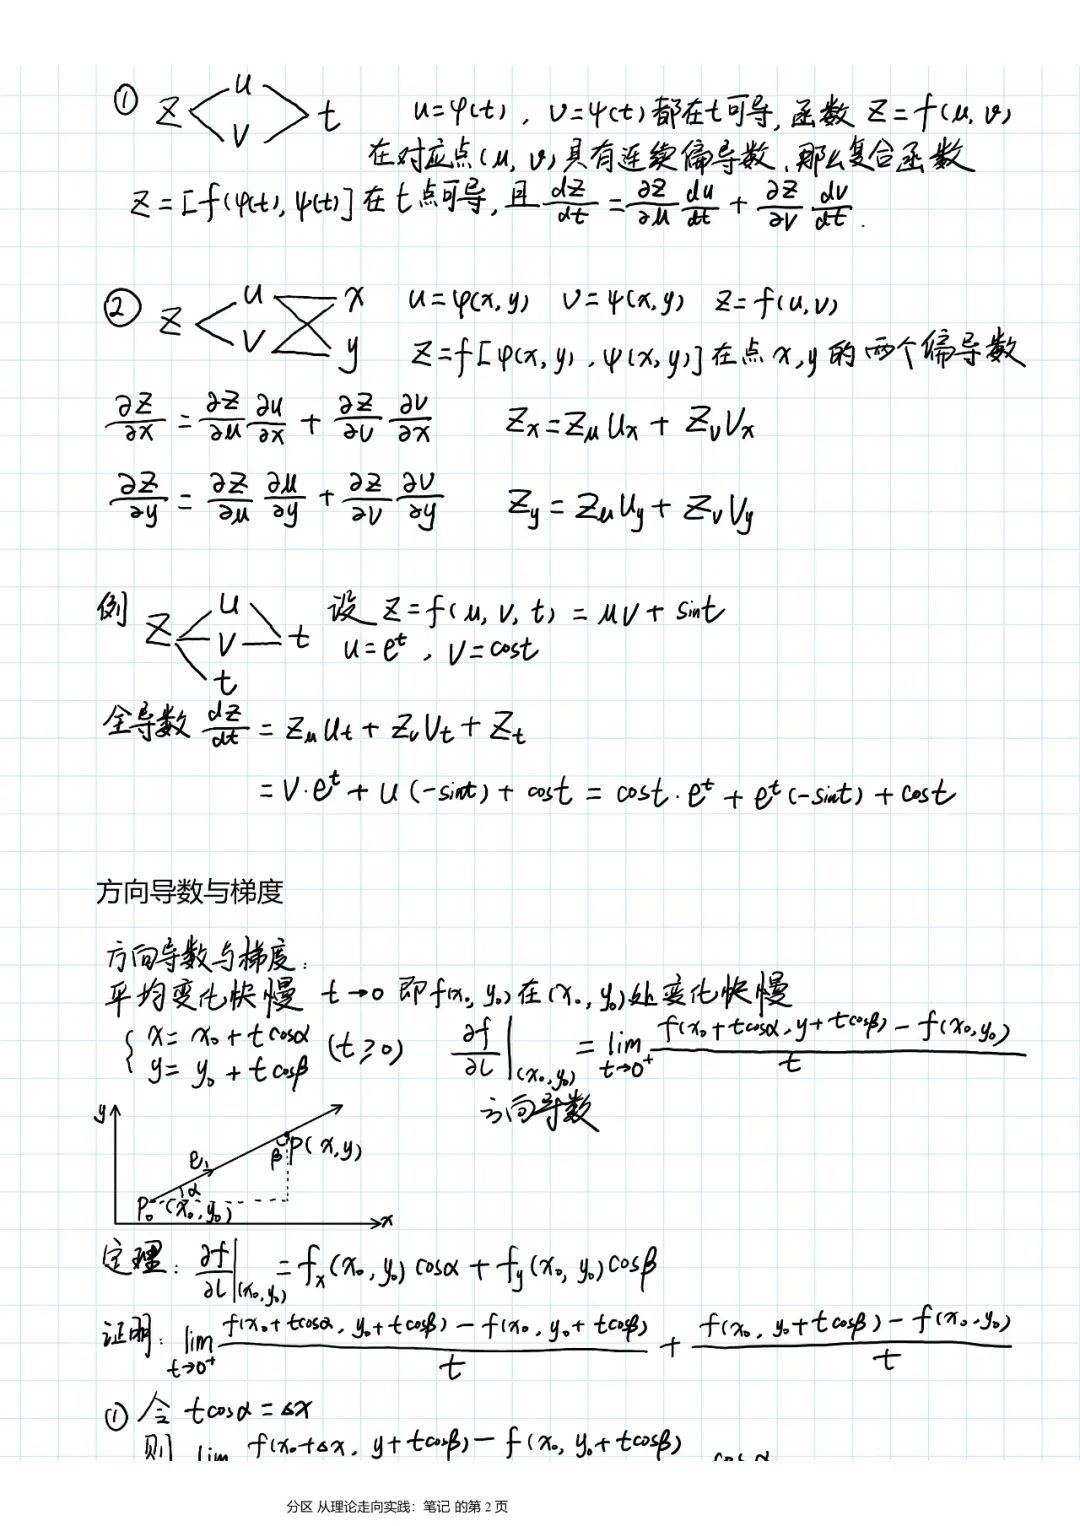 ① z u v t u=φ(t), v=ψ(t)都在t可导, 函数 z=f(u,v)
在对应点(u,v)具有连续偏导数,那么复合函数
z=[f(φ(t),ψ(t)]在t点可导,且 dz/dt = ∂z/∂u du/dt + ∂z/∂v dv/dt.
② z u v x y u=φ(x,y) v=ψ(x,y) z=f(u,v)
z=f[φ(x,y),ψ(x,y)]在点x,y的两个偏导数
∂z/∂x = ∂z/∂u ∂u/∂x + ∂z/∂v ∂v/∂x z_x=z_u u_x + z_v v_x
∂z/∂y = ∂z/∂u ∂u/∂y + ∂z/∂v ∂v/∂y z_y = z_u u_y + z_v v_y
例 z u v t t 设 z=f(u,v,t) = uv + sint
u=e^t, v=cost
全导数 dz/dt = z_u u_t + z_v v_t + z_t
= v·e^t + u(-sint) + cost = cost·e^t + e^t(-sint) + cost
方向导数与梯度
方向导数与梯度:
平均变化快慢 t→0 即f(x₀,y₀)在(x₀,y₀)处变化快慢
{ x= x₀ + t cosα
y= y₀ + t cosβ (t≥0) ∂f/∂l|(x₀,y₀) = lim t→0⁺ f(x₀+tcosα, y+tcosβ) - f(x₀,y₀) / t
方向导数
y e₁ β P(x,y)
α P₀(x₀,y₀) x
定理: ∂f/∂l|(x₀,y₀) = f_x(x₀,y₀) cosα + f_y(x₀,y₀) cosβ
证明: lim t→0⁺ f(x₀+tcosα, y₀+tcosβ) - f(x₀, y₀+tcosβ) / t + f(x₀, y₀+tcosβ) - f(x₀,y₀) / t
① 令 tcosα = Δx
则 lim f(x₀+Δx, y+tcosβ) - f(x₀, y₀+tcosβ) cosα
分区 从理论走向实践：笔记 的第 2 页